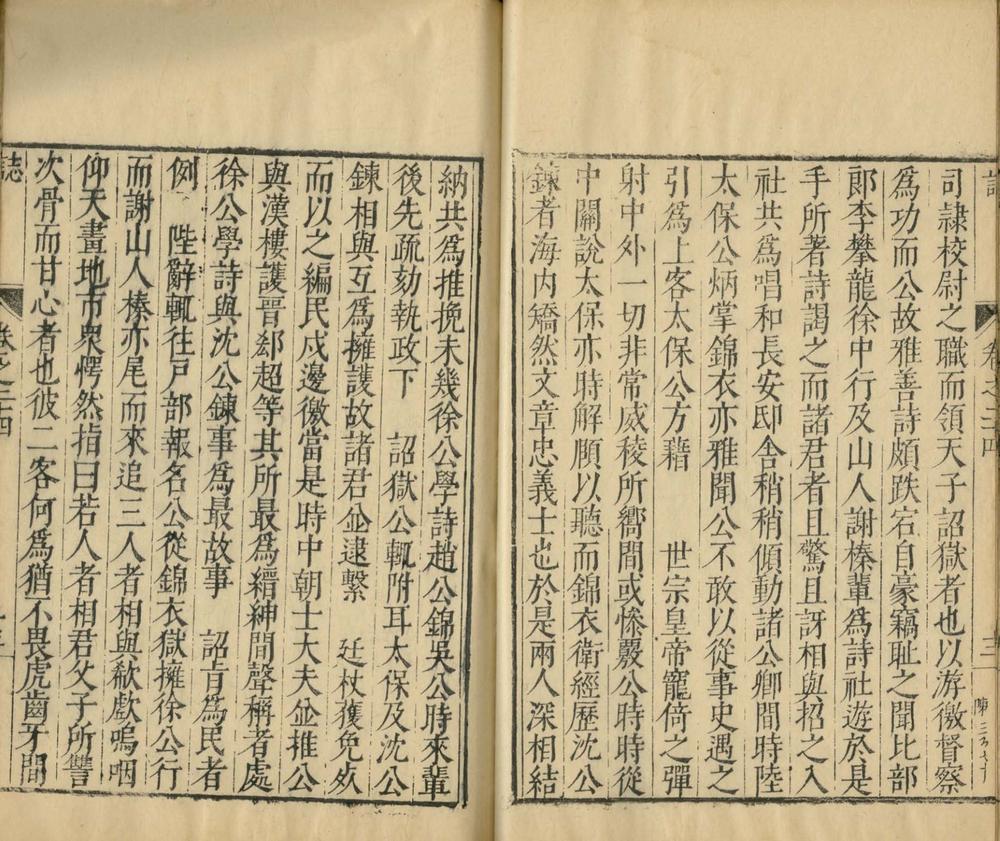 司隸校尉之職而領天子詔獄者也以游徼督察
爲功而公故雅善詩頗跌宕自豪竊耻之聞比部
郎李攀龍徐中行及山人謝榛輩爲詩社遊於是
手所著詩謁之而諸君者且驚且訝相與招之入
社共爲唱和長安邸舍稍稍傾動諸公卿間時陸
太保公炳掌錦衣亦雅聞公不敢以從事史遇之
引爲上客太保公方藉　世宗皇帝寵倚之彈
射中外一切非常威稜所嚮間或慘覈公時時從
中關說太保亦時解頤以聽而錦衣衛經歷沈公
鍊者海内矯然文章忠義士也於是兩人深相結
納共爲推挽未幾徐公學詩趙公錦吳公時來輩
後先疏劾執政下　詔獄公輒附耳太保及沈公
鍊相與互爲擁護故諸君並逮繫　廷杖獲免死
而以之編民戍邊徼當是時中朝士大夫並推公
與漢樓護晉郄超等其所最爲縉紳間聲稱者處
徐公學詩與沈公鍊事爲最故事　詔肯爲民者
例　陛辭輒往戸部報名公從錦衣獄擁徐公行
而謝山人榛亦尾而來追三人者相與欷歔嗚咽
仰天畫地市衆愕然指曰若人者相君父子所讐
次骨而甘心者也彼二客何爲猶不畏虎齒牙間
誌
卷之二四
三